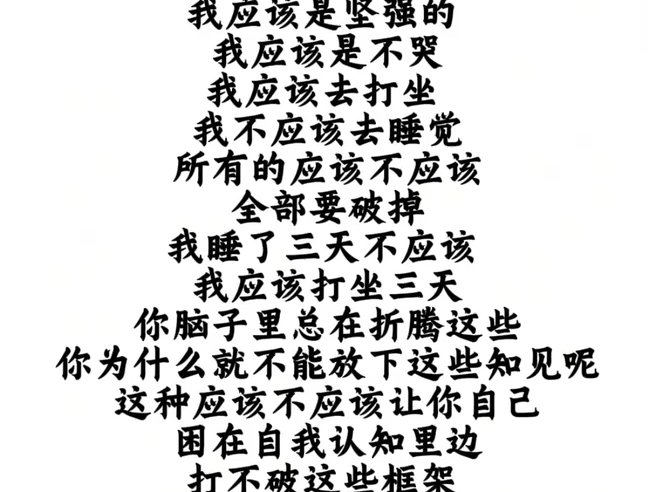 我应该是坚强的
我应该是不哭
我应该去打坐
我不应该去睡觉
所有的应该不应该
全部要破掉
我睡了三天不应该
我应该打坐三天
你脑子里总在折腾这些
你为什么就不能放下这些知见呢
这种应该不应该让你自己
困在自我认知里边
打不破这些框架